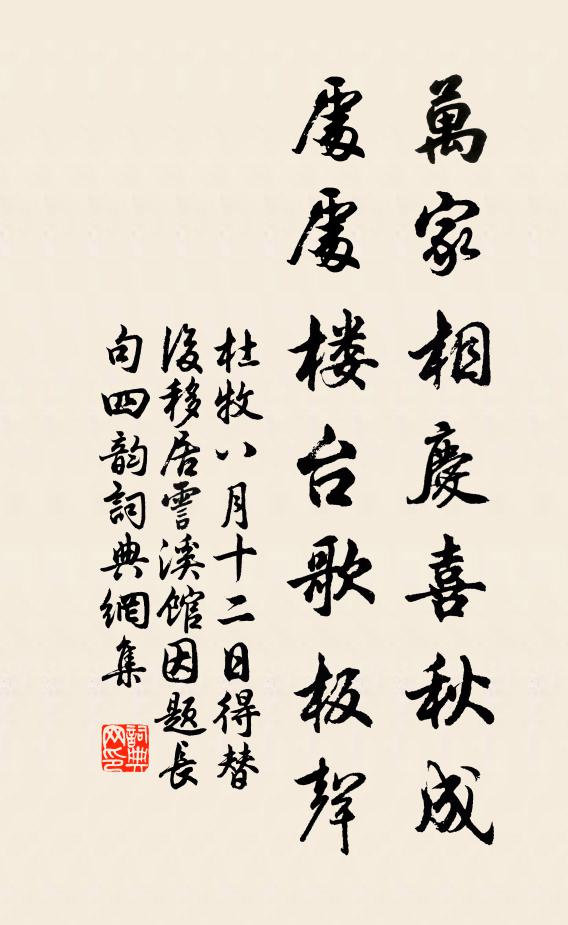 萬家相慶喜秋成
處處楼台歌板聲
杜牧八月十二日得替
後移居霅溪館因題長
句四韵詞典網集
詞典
网印